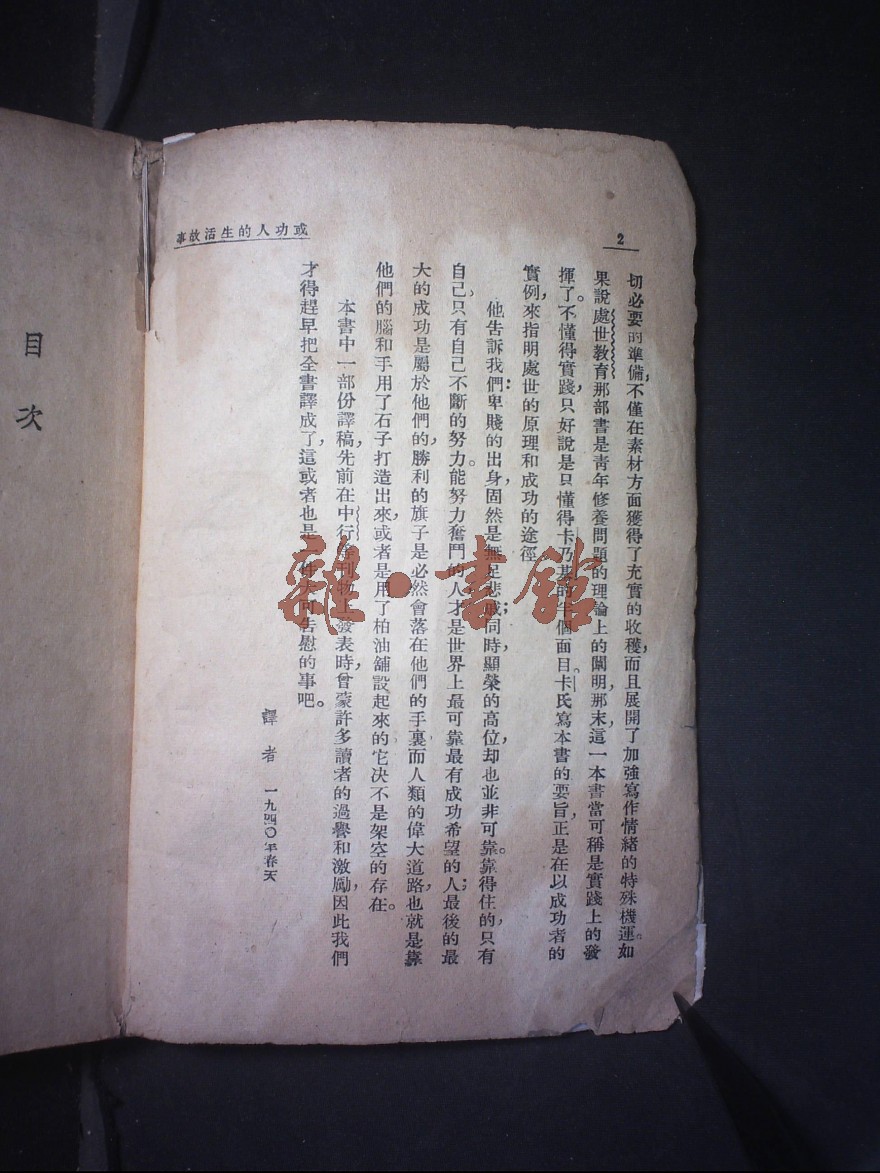 2
或功人的生活故事
切必要的準備，不僅在素材方面獲得了充實的收穫，而且展開了加強寫作情緒的特殊機運。如
果說處世教育那部書是青年修養問題的理論上的闡明，那末，這一本書當可稱是實踐上的發
揮了。不懂得實踐，只好說是只懂得卡乃基的半個面目。卡氏寫本書的要旨，正是在以成功者的
實例，來指明處世的原理和成功的途徑。
他告訴我們：卑賤的出身，固然是無足悲戚；同時，顯榮的高位，却也並非可靠。靠得住的，只有
自己，只有自己不斷的努力。能努力奮鬥的人，才是世界上最可靠最有成功希望的人；最後的最
大的成功是屬於他們的，勝利的旗子是必然會落在他們的手裏，而人類的偉大道路，也就是靠
他們的腦和手用了石子打造出來，或者是用了柏油舖設起來的，它决不是架空的存在。
本書中一部份譯稿，先前在中行刊物上發表時，曾蒙許多讀者的過譽和激勵，因此我們
才得趕早把全書譯成了，這或者也是告慰的事吧。
譯者 一九四〇年春天
目次
雜·書館